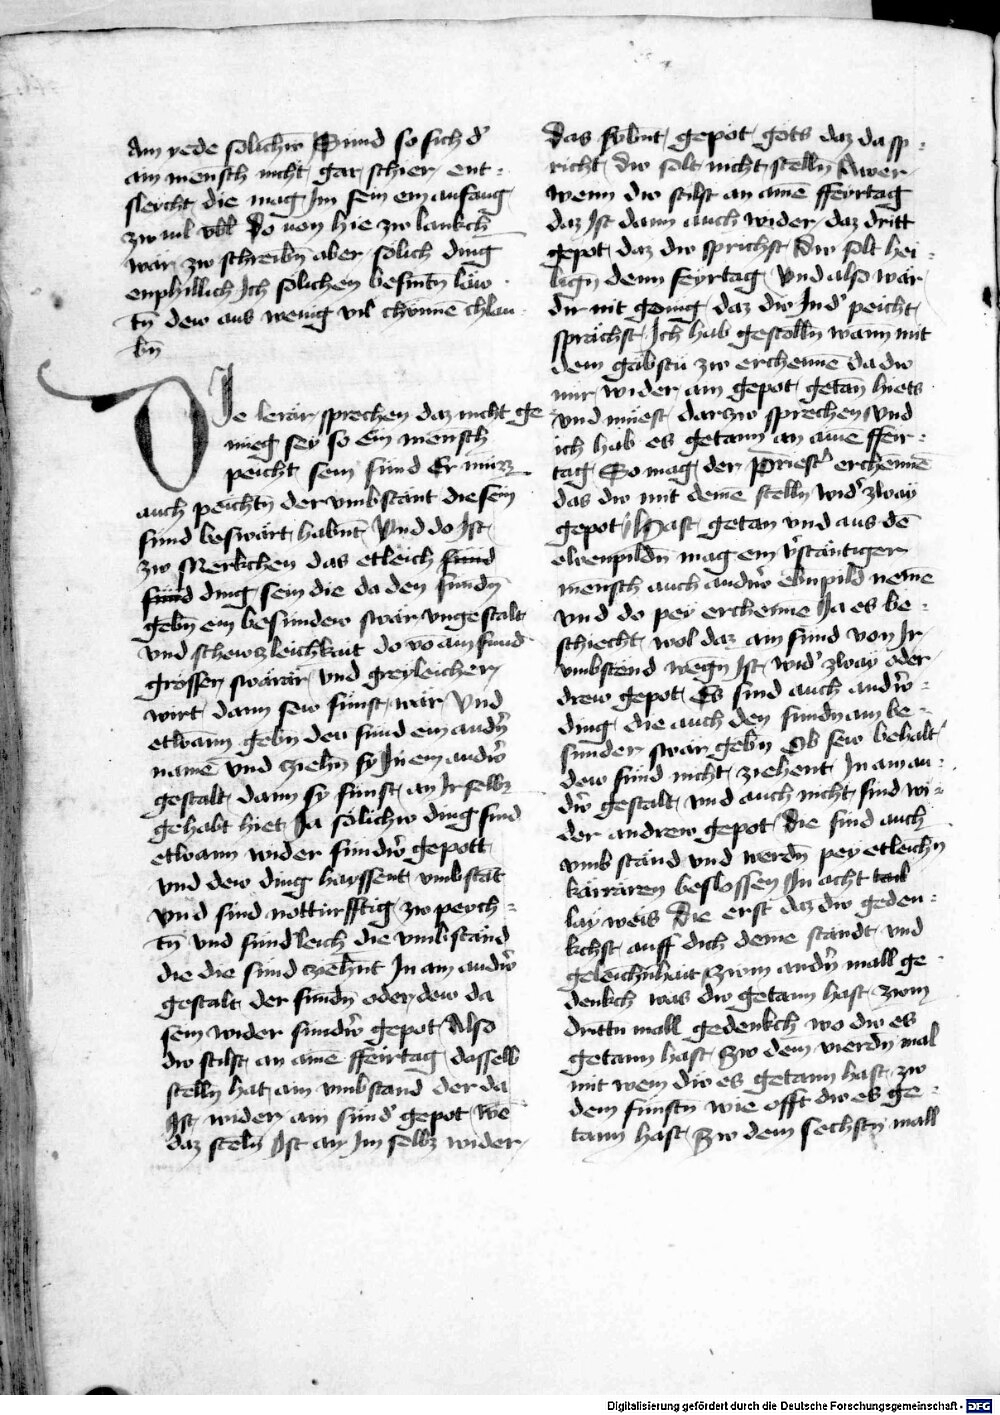 Am yede solichew Sunnd so sich d'
ain mensch nicht gar schier ent-
slecht die mag Im sein ein anfang
zw vil vbl Do von hie zw lankch
wär zw schreibn aber solich ding
enphillich Ich solichen besintn läw
tn dew aus wenig vil chünnē chlau
bn
DIe lerär sprechen daz nicht ge
nueg sey so Ein mensch
peicht sein sünd Er muzz
auch peichtn der vmbstänt die sein
sünd beswärt habnt Vnd do Ist
zw Merkchen das etleich sünd
sünd ding sein die da den sündn
gebn ein besundew swär vngestalt
vnd schewzleichkait do vō ain sund
grösser swärär vnd greyleicher
wirt dann sew sünst wär Vnd
etwann gebn den sünd ein andn
namē vnd ziehn sy In ein andrew
gestalt dann sy sünst an Ir selbs
gehabt hiet Ja sölichew ding sind
etwann wider sundrew gepott
vnd dew ding hayssent vmbstät
vnd sind notturfftig zw peych-
tn vnd sundleich die vmbständ
die die sünd ziehnt In am andrew
gestalt der sündn oder dew da
sein wider sundrew gepot Also
dw stilst an aine ffeirtag dasselb
stelln hat ain vmbstand der da
Ist wider ain sund' gepot Wē
daz steln Ist an Im selbs wider
das sybent gepot gots daz da sp-
richt dw solt nicht stelln Awer
wenn dw stilst an ainē ffeyrtag
daz Ist dann auch wider daz dritt
gepot daz dw sprichst dw solt hei
lign denn feyrtag Vnd also wär
dir nit genug daz dw In d' peicht
sprächst Ich hab gestolln wann mit
dem gäbstu zw erchenne da dw
nur wider ain gepot getan hiets
vnd müest darzw sprechen Vnd
ich hab es getann an aine ffeir-
tag So mag der priest' erchennē
das dw mit deme stelln wid' zway
gepot Hast getan vnd aus dē
ebenpildn mag ein v'stäntiger
mensch auch andrew ebnpild neme
vnd do pey erchenne Ja es be-
schiecht wol daz ain sünd von Ir
vmbstend wegn Ist wid' zway oder
drew gepot Es sind auch andrew-
ding die auch den sundn ain be-
sunder swär gebn Ob sew behalt
dew sünd nicht ziehent In ain an-
drew gestalt vnd auch nicht sind wi-
der andrew gepot die sind auch
vmb ständ vnd werdn pey etleichn
lärrären beslossen In acht tail
lay weis Die erst daz dw geden-
kchst auff dich deine standt vnd
geleichnhait Zwm andn mall ge-
denkch was dw getann hast zwm
drittn mall gedenkch wo dw es
getann hast Zw dem vierdn mal
mit wem dw es getann hast zw
dem funftn wie offt dw es ge-
tann hast Zw dem sechstn mall
Digitalisierung gefördert durch die Deutsche Forschungsgemeinschaft - DFG